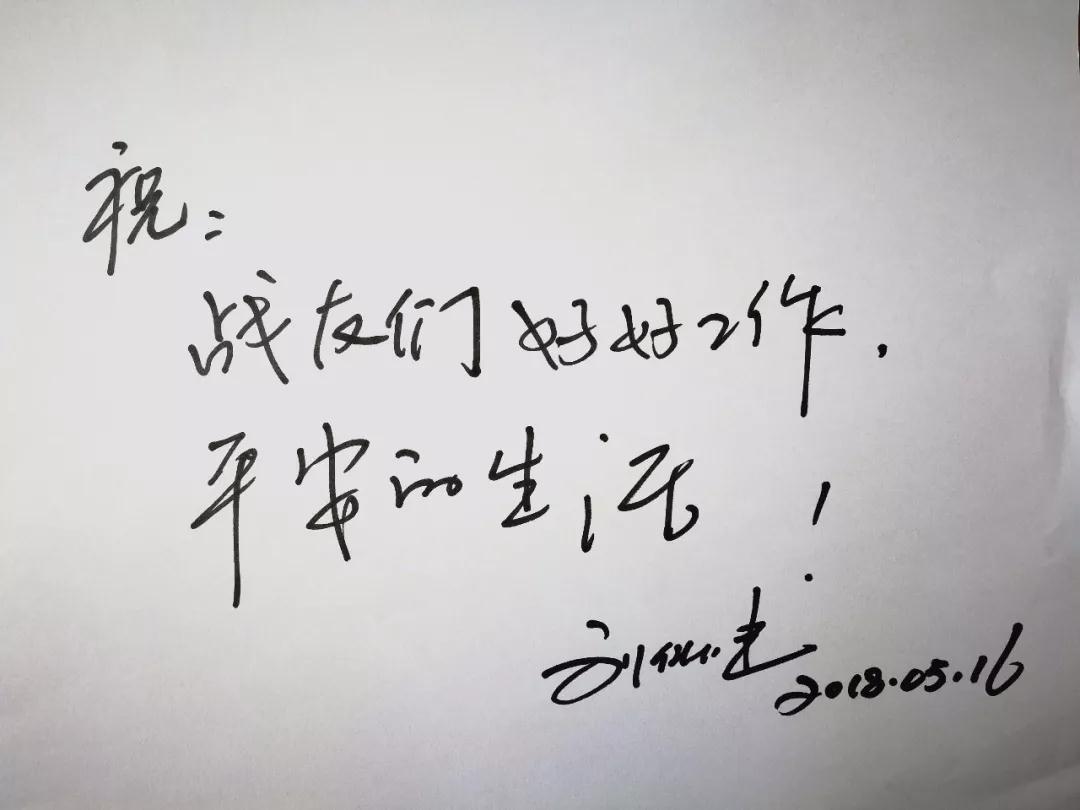 祝：
战友们好好工作，
平安的生活！
刘 建 2018.05.16